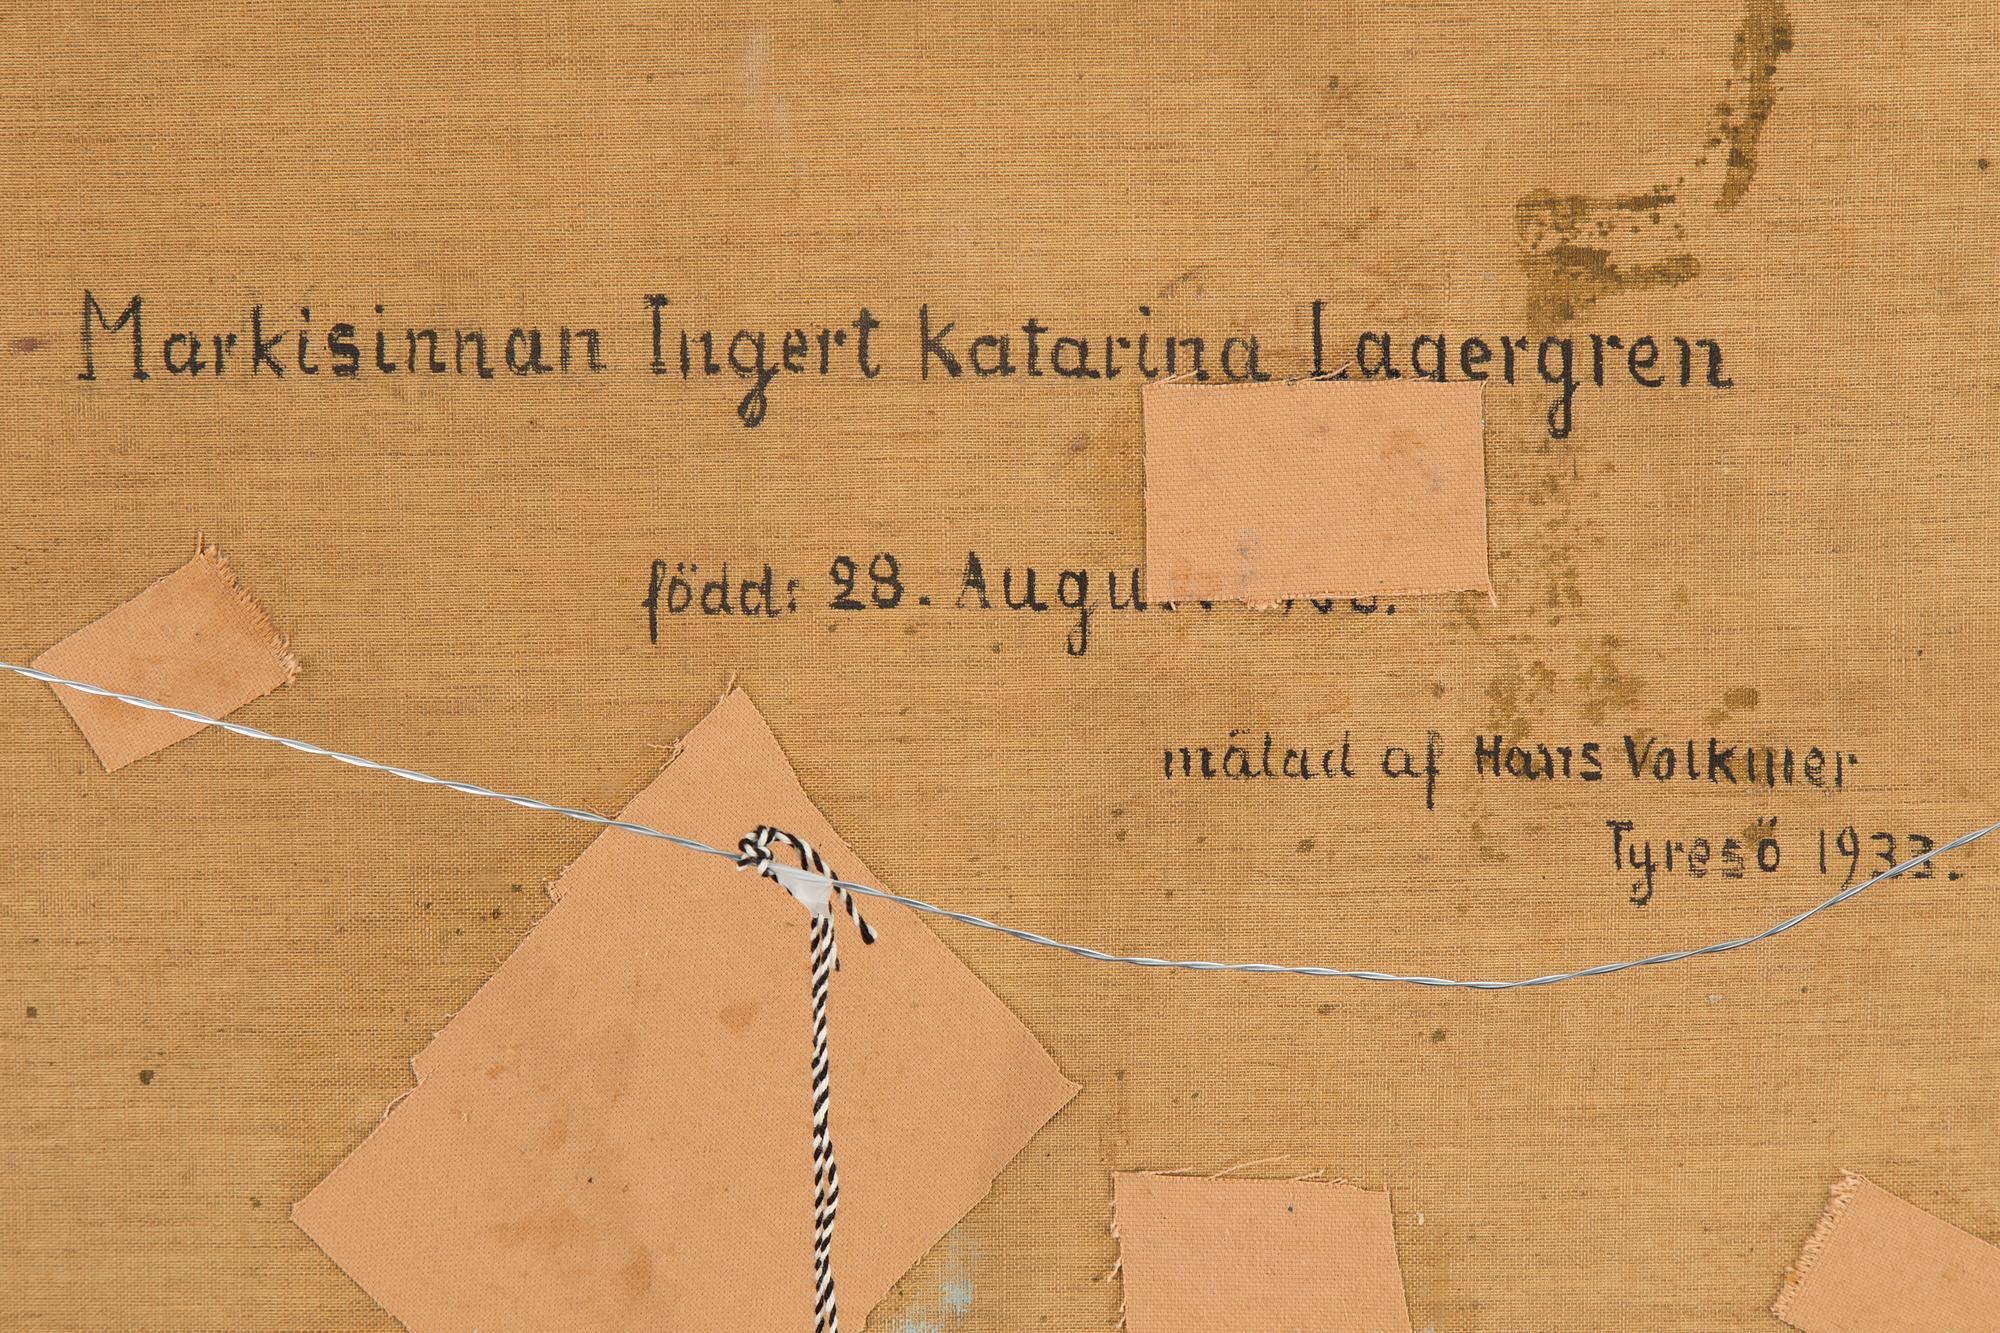 Markisinnan Ingert Katarina Lagergren
född: 28. Augu
målad af Hans Volkmer
Tyresö 1933.